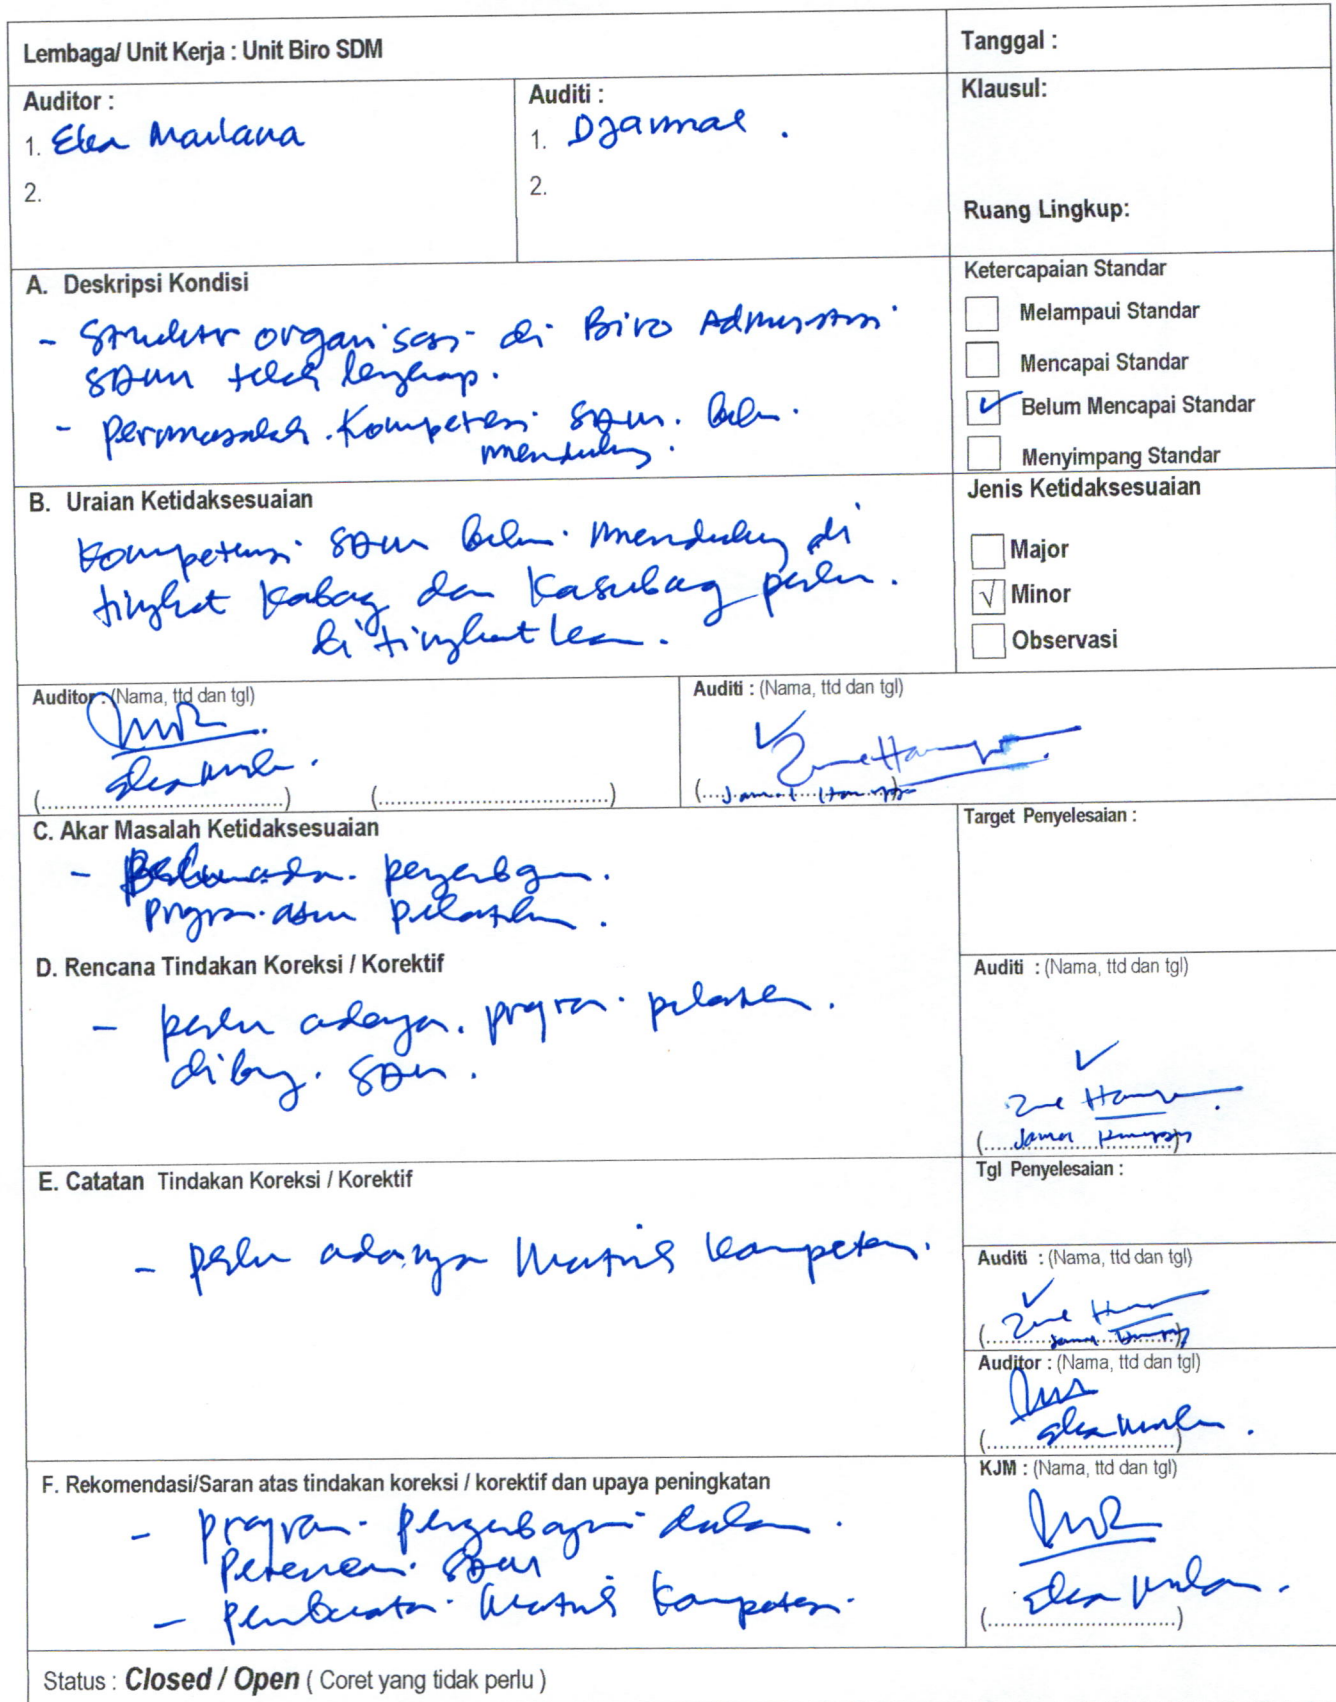 Lembaga/ Unit Kerja : Unit Biro SDM
Tanggal :
Auditor :
1. Elea Maulana
2.
Auditi :
1. Djammal .
2.
Klausul:
Ruang Lingkup:
A. Deskripsi Kondisi
- Struktur organisasi di Biro Administrasi
SDM telah lengkap.
- Permasalah. Kompetensi SDM. belum
mendukung.
Ketercapaian Standar
Melampaui Standar
Mencapai Standar
✓ Belum Mencapai Standar
Menyimpang Standar
B. Uraian Ketidaksesuaian
Kompetensi SDM belum mendukung di
tingkat Kabag dan Kasubag perlu.
di tingkatkan.
Jenis Ketidaksesuaian
Major
√ Minor
Observasi
Auditor : (Nama, ttd dan tgl)
(................................) (................................)
Auditi : (Nama, ttd dan tgl)
C. Akar Masalah Ketidaksesuaian
- Belum ada
program pelatihan.
Target Penyelesaian :
D. Rencana Tindakan Koreksi / Korektif
- perlu adanya. program pelatihan.
SDM.
Auditi : (Nama, ttd dan tgl)
E. Catatan Tindakan Koreksi / Korektif
- perlu adanya Matriks kompetensi.
Tgl Penyelesaian :
Auditi : (Nama, ttd dan tgl)
Auditor : (Nama, ttd dan tgl)
F. Rekomendasi/Saran atas tindakan koreksi / korektif dan upaya peningkatan
- program pengembangan dalam
SDM
- pembuatan Matriks Kompetensi.
KJM : (Nama, ttd dan tgl)
(................................)
Status : Closed / Open ( Coret yang tidak perlu )